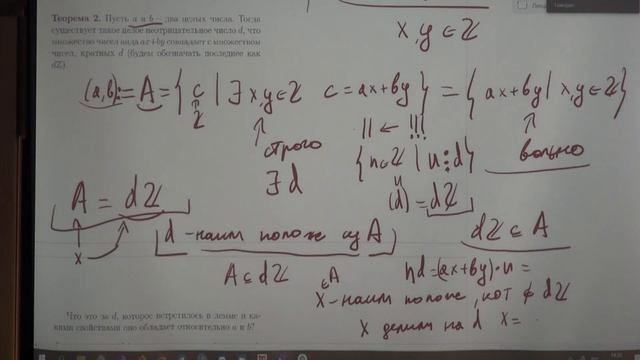 x, y ∈ ℤ
Теорема 2. Пусть a и b – два целых числа. Тогда
существует такое целое неотрицательное число d, что
множество чисел вида ax+by совпадает с множеством
чисел, кратных d (будем обозначать последнее как
dℤ).
(a,b) := A = { c | ∃ x,y ∈ ℤ c = ax+by } = { ax+by | x,y ∈ ℤ }
ℤ
строго
|| ← !!!
{ n ∈ ℤ | n ⋮ d }
вольно
∃ d
(d) = dℤ
A = dℤ
x
d - наим полож из A
dℤ ⊆ A
A ⊆ dℤ
nd = (ax+by)·n =
∈A
x - наим полож, кот ∉ dℤ
x делим на d x =
Что это за d, которое встретилось в лемме и ка-
кими свойствами оно обладает относительно a и b?